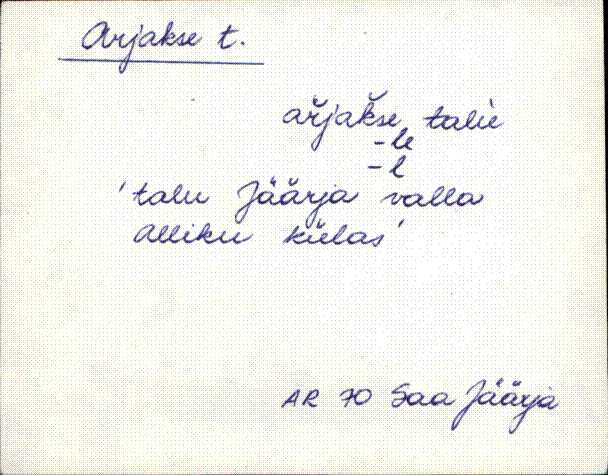 Arjakse t.
ar̆jak̆se talu
-le
-l
'talu Jäärja valla
Alliku külas'
AR 70 Saa Jäärja